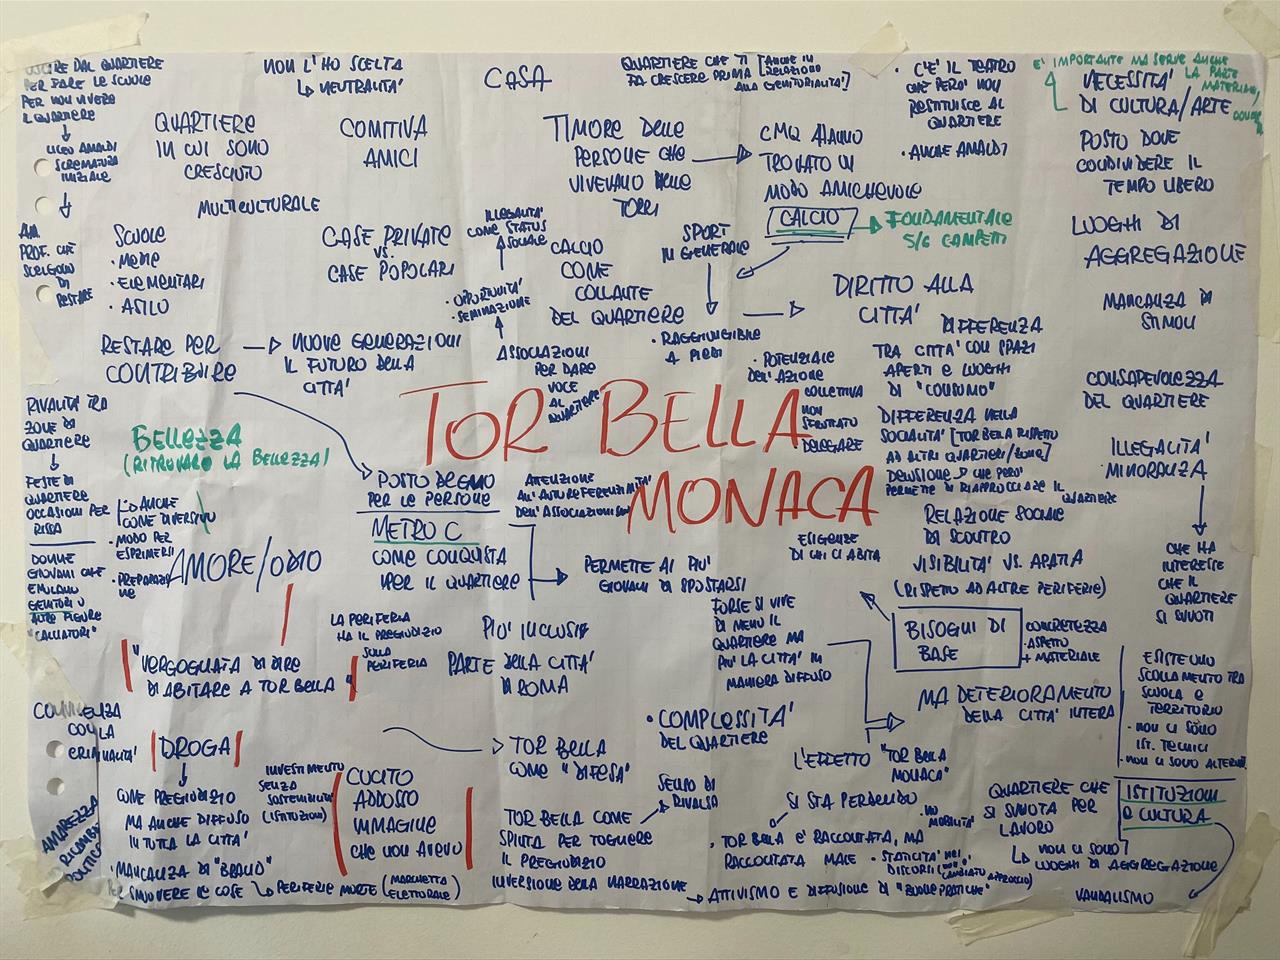 USCIRE DAL QUARTIERE
PER FARE LE SCUOLE
PER NON VIVERE
IL QUARTIERE
LICEO AMALDI
SCREMATURA
INIZIALE
PROF. CHE
SCELGONO
DI
RESTARE
NON L'HO SCELTA
↳ NEUTRALITA'
CASA
QUARTIERE CHE TI [ANCHE IN
FA CRESCERE PRIMA RELAZIONE
ALLA GENITORIALITA']
• C'E' IL TEATRO
CHE PERO' NON
RESTITUISCE AL
QUARTIERE
• ANCHE AMALDI
E' IMPORTANTE MA SERVE ANCHE
LA PARTE
MATERIALE
NECESSITA'
DI CULTURA/ARTE
POSTO DOVE
CONDIVIDERE IL
TEMPO LIBERO
LUOGHI DI
AGGREGAZIONE
MANCANZA DI
STIMOLI
CONSAPEVOLEZZA
DEL QUARTIERE
ILLEGALITA'
MINORANZA
CHE HA
INTERESSE
CHE IL
QUARTIERE
SI SVUOTI
QUARTIERE
IN CUI SONO
CRESCIUTO
COMITIVA
AMICI
MULTICULTURALE
TIMORE DELLE
PERSONE CHE
VIVEVANO NELLE
TORRI
CMQ HANNO
TROVATO IN
MODO AMICHEVOLE
CALCIO
FONDAMENTALE
S/C CAMPETTI
SCUOLE
• MEDIE
• ELEMENTARI
• ASILO
CASE PRIVATE
VS.
CASE POPOLARI
ILLEGALITA'
COME STATUS
SOCIALE
• OPPORTUNITA'
• SEMINAZIONE
ASSOCIAZIONI
PER DARE
VOCE
AL
QUARTIERE
CALCIO
COME
COLLANTE
DEL QUARTIERE
SPORT
IN GENERALE
• RAGGIUNGIBILE
A PIEDI
DIRITTO ALLA
CITTA'
DIFFERENZA
TRA CITTA' CON SPAZI
APERTI E LUOGHI
DI "CONSUMO"
DIFFERENZA NELLA
SOCIALITA' [TOR BELLA RISPETTO
AD ALTRI QUARTIERI/ZONE]
DELUSIONE → CHE PERO'
PERMETTE DI RIAPPROCCIARE IL
QUARTIERE
• POTENZIALE
DELL'AZIONE
COLLETTIVA
NON
SFRUTTATO
DELEGARE
RESTARE PER
CONTRIBUIRE
NUOVE GENERAZIONI
IL FUTURO DELLA
CITTA'
TOR BELLA
MONACA
RIVALITA' TRA
ZONE DI
QUARTIERE
FESTE DI
QUARTIERE
OCCASIONI PER
RISSA
DONNE
GIOVANI CHE
EMULANO
GENITORI O
ALTRE FIGURE
"CALCIATORI"
BELLEZZA
(RITROVARE LA BELLEZZA)
↳ ANCHE
COME DIVERSIVO
• MODO PER
ESPRIMERSI
• PREPARAZIO
NE
AMORE/ODIO
POSTO DEGNO
PER LE PERSONE
METRO C
COME CONQUISTA
PER IL QUARTIERE
ATTENZIONE
ALL'AUTOREFERENZIALITA'
DELL'ASSOCIAZIONISMO
PERMETTE AI PIU'
GIOVANI DI SPOSTARSI
ESIGENZE
DI CHI CI ABITA
RELAZIONE SOCIALE
DI SCONTRO
VISIBILITA' VS. APATIA
(RISPETTO AD ALTRE PERIFERIE)
BISOGNI DI
BASE
CONCRETEZZA
• ASPETTO
+ MATERIALE
FORSE SI VIVE
DI MENO IL
QUARTIERE MA
PIU' LA CITTA' IN
MANIERA DIFFUSO
MA DETERIORAMENTO
DELLA CITTA' INTERA
ESISTE UNO
SCOLLAMENTO TRA
SCUOLA E
TERRITORIO
• NON CI SONO
IST. TECNICI
LA PERIFERIA
HA IL PREGIUDIZIO
SULLA
PERIFERIA
PIU' INCLUSIV
PARTE DELLA CITTA'
DI ROMA
"VERGOGNATA DI DIRE
DI ABITARE A TOR BELLA"
CONVIVENZA
CON LA
CRIMINALITA'
DROGA
COME PREGIUDIZIO
MA ANCHE DIFFUSO
IN TUTTA LA CITTA'
INVESTIMENTO
SENZA
SOSTENIBILITA'
(ISTITUZIONI)
CUCITO
ADDOSSO
IMMAGINE
CHE NON AVEVO
TOR BELLA
COME "DIFESA"
• COMPLESSITA'
DEL QUARTIERE
SENSO DI
RIVALSA
TOR BELLA COME
SPINTA PER TOGLIERE
IL PREGIUDIZIO
INVERSIONE DELLA NARRAZIONE
L'EFFETTO "TOR BELLA
MONACA"
SI STA PERDENDO
• TOR BELLA E' RACCONTATA, MA
RACCONTATA MALE
• STATICITA' NEI
DISCORSI
(CAMBIATO APPROCCIO)
NO
MOBILITA'
→ ATTIVISMO E DIFFUSIONE DI "BUONE PRATICHE"
QUARTIERE CHE
SI SVUOTA PER
LAVORO
↳ NON CI SONO
LUOGHI DI AGGREGAZIONE
ISTITUZIONI
E CULTURA
VANDALISMO
AMAREZZA
RICAMBIO
POLITICO
• MANCANZA DI "BRACCIO"
PER SMUOVERE LE COSE
↳ PERIFERIE MORTE (MARCHETTA
ELETTORALE)